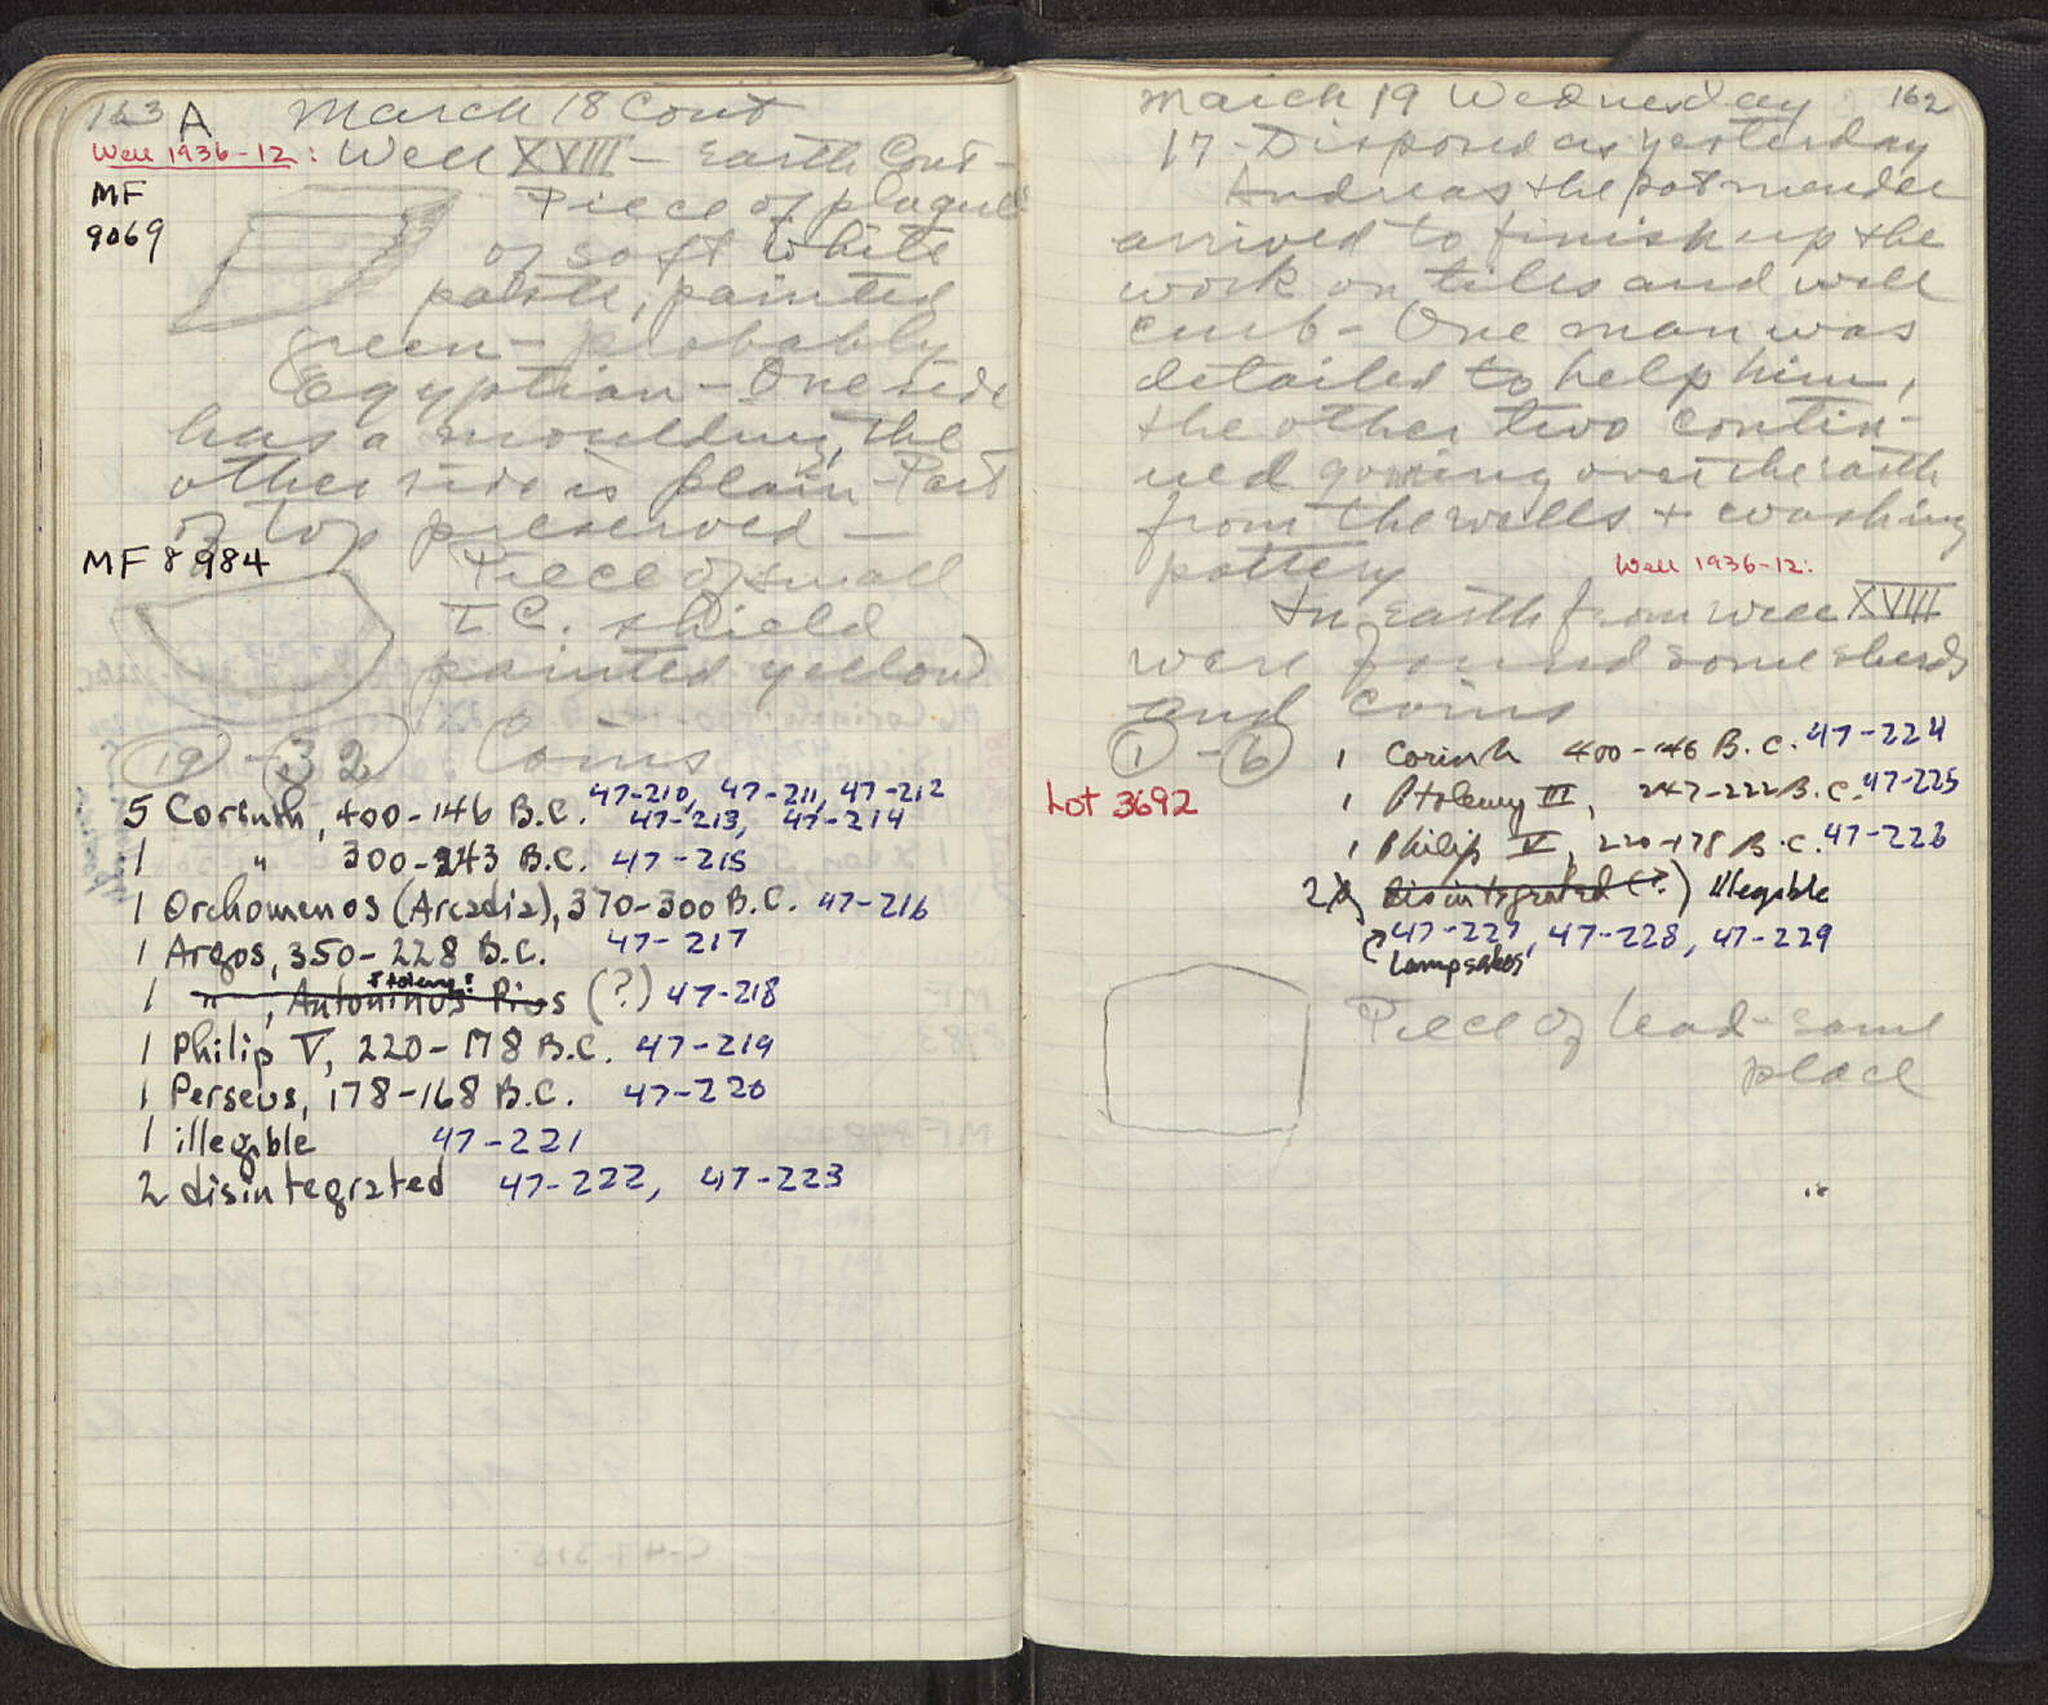 163 A March 18 Cont
Well 1936-12: Well XVIII - Earth Cont-
MF
9069
Piece of plaque
of soft white
paste, painted
green - probably
Egyptian - One side
has a moulding, the
other side is plain - Part
of top preserved -
MF 8984
Piece of small
T.C. shield
painted yellow
19 - 32 Coins
5 Corinth, 400-146 B.C. 47-210, 47-211, 47-212
47-213, 47-214
1 " 300-243 B.C. 47-215
1 Orchomenos (Arcadia), 370-300 B.C. 47-216
1 Argos, 350-228 B.C. 47-217
Ptolemy?
1 ", Antoninus Pius (?) 47-218
1 Philip V, 220-178 B.C. 47-219
1 Perseus, 178-168 B.C. 47-220
1 illegible 47-221
2 disintegrated 47-222, 47-223
March 19 Wednesday 162
17 - Disposed as yesterday
Andreas the pot mender
arrived to finish up the
work on tiles and well
curb - One man was
detailed to help him,
the other two contin-
ued going over the earth
from the wells + washing
pottery
Well 1936-12:
In Earth from Well XVIII
were found some sherds
and coins
1 - 6
1 Corinth 400-146 B.C. 47-224
Lot 3692
1 Ptolemy III, 247-222 B.C. 47-225
1 Philip V, 220-178 B.C. 47-226
2 disintegrated (?) Illegible
47-227, 47-228, 47-229
Lampsakos
Piece of lead - same
place